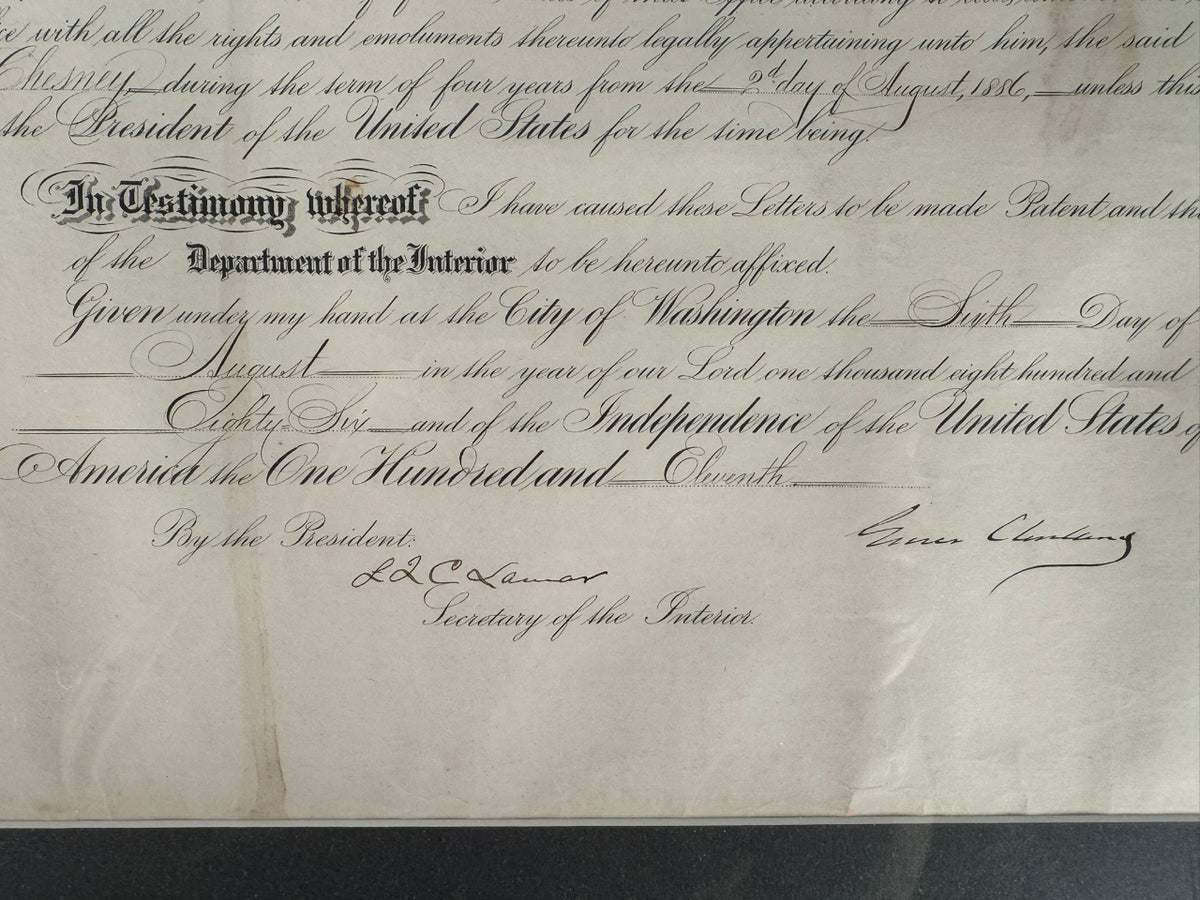 of this Office according to law,
ce with all the rights and emoluments thereunto legally appertaining unto him, the said
Chesney, during the term of four years from the 2d day of August, 1886, unless this
the President of the United States for the time being.
In Testimony whereof I have caused these Letters to be made Patent and the
of the Department of the Interior to be hereunto affixed.
Given under my hand at the City of Washington the Sixth Day of
August in the year of our Lord one thousand eight hundred and
Eighty-Six and of the Independence of the United States of
America the One Hundred and Eleventh
By the President: Grover Cleveland
L Q C Lamar
Secretary of the Interior.